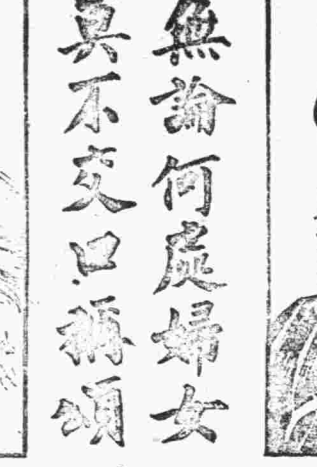 無論何處婦女
莫不交口稱頌